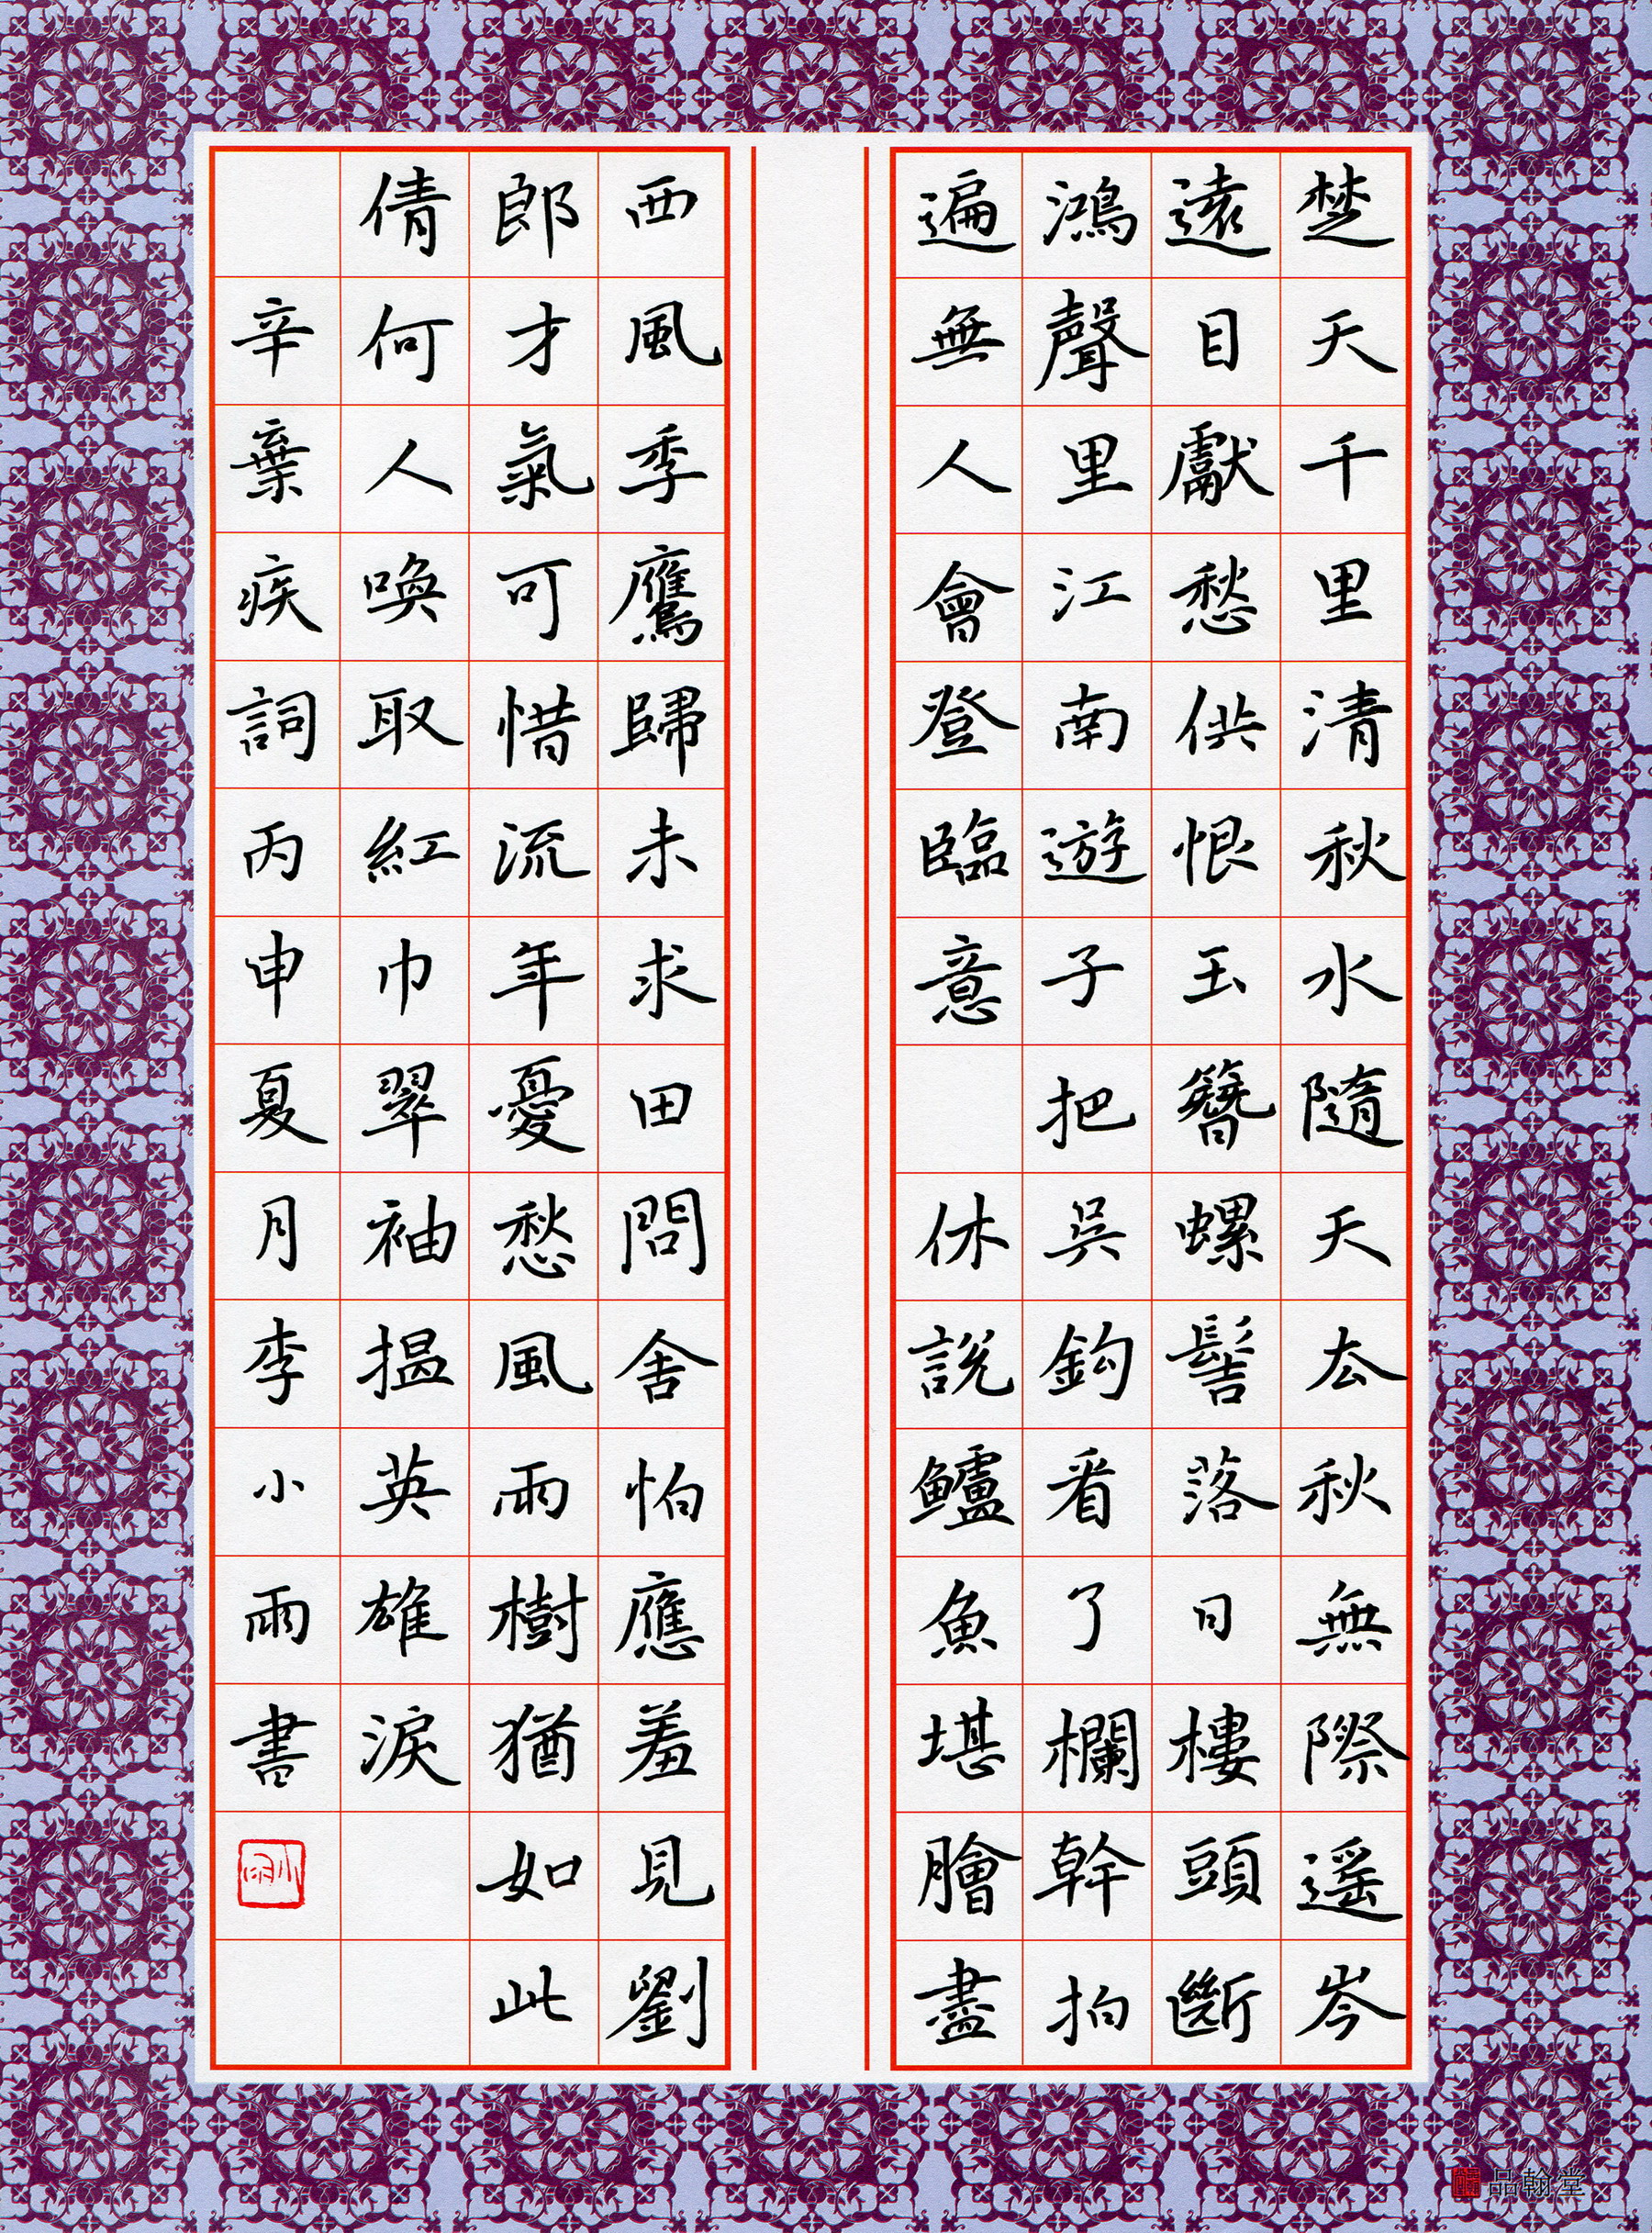 楚天千里清秋水隨天去秋無際遥岑
遠目獻愁供恨玉簪螺髻落日樓頭斷
鴻聲里江南遊子把吳鈎看了欄幹拍
遍無人會登臨意 休說鱸魚堪膾盡
西風季鷹歸未求田問舍怕應羞見劉
郎才氣可惜流年憂愁風雨樹猶如此
倩何人喚取紅巾翠袖揾英雄淚
辛棄疾詞丙申夏月李小雨書
小雨
品翰堂